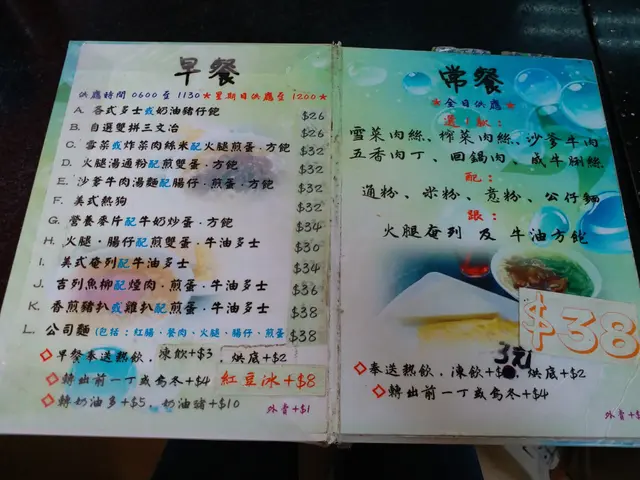 早餐
供應時間 0600 至 1130 ★星期日供應至 1200★
A. 各式多士或奶油豬仔飽 $26
B. 自選雙拼三文冶 $26
C. 雪菜或炸菜肉絲米配火腿煎蛋·方飽 $32
D. 火腿湯通粉配煎雙蛋·方飽 $32
E. 沙爹牛肉湯麵配腸仔·煎蛋·方飽 $32
F. 美式熱狗 $32
G. 營養麥片配牛奶炒蛋·方飽 $34
H. 火腿·腸仔配煎雙蛋·牛油多士 $30
I. 美式奄列配牛油多士 $34
J. 吉列魚柳配煙肉·煎蛋·牛油多士 $36
K. 香煎豬扒或雞扒配煎蛋·牛油多士 $38
L. 公司麵 (包括:紅腸·餐肉·火腿·腸仔·煎蛋 $38
早餐奉送熱飲, 凍飲+$3, 烘底+$2
轉出前一丁或烏冬+$4 紅豆冰+$8
轉奶油多+$5, 奶油豬+$10
外賣+$1
常餐
★全日供應★
選1款:
雪菜肉絲、榨菜肉絲、沙爹牛肉
五香肉丁、回鍋肉、咸牛脷絲
配:
通粉、米粉、意粉、公仔麵
跟:
火腿奄列 及 牛油方飽
$38
奉送熱飲, 凍飲+3元, 烘底+$2
轉出前一丁或烏冬+$4